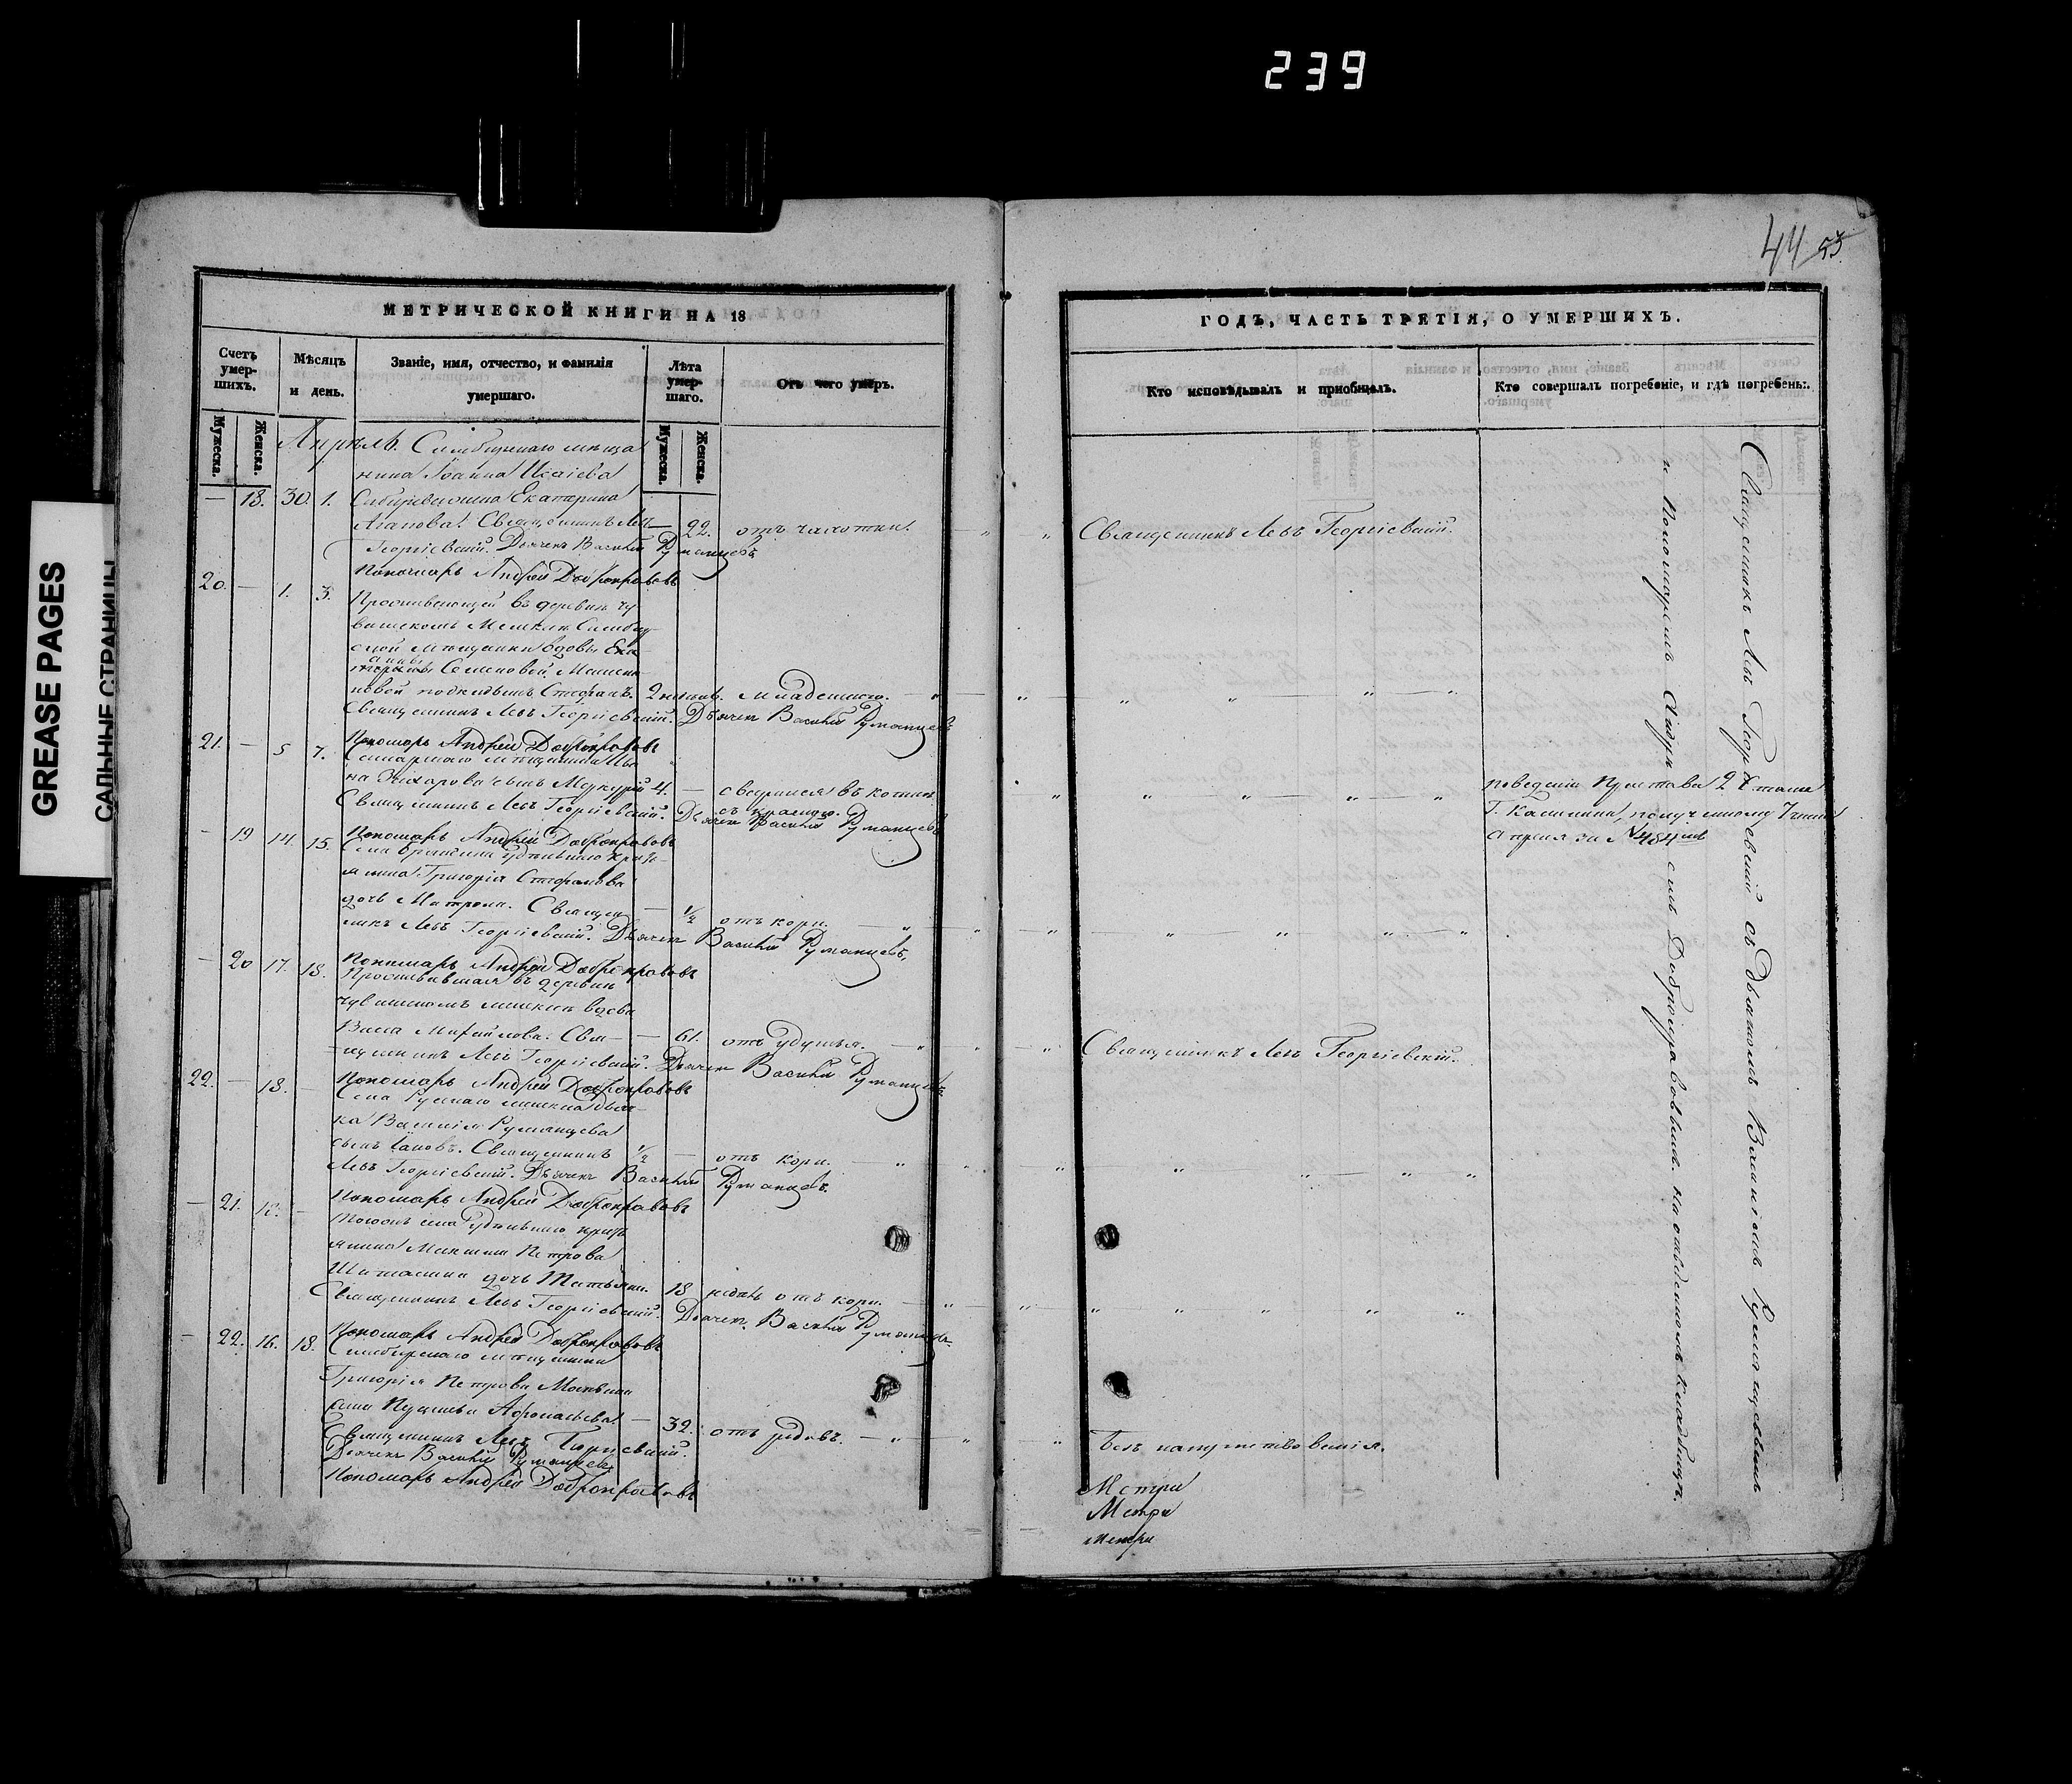 239
GREASE PAGES
САЛЬНЫЕ СТРАНИЦЫ
44 53
МЕТРИЧЕСКОЙ КНИГИ НА 18
Счетъ умершихъ.
Мужеска.
Женска.
Мѣсяцъ и день.
Званіе, имя, отчество, и фамилія умершаго.
Лѣта умершаго.
Мужеска.
Женска.
Отъ чего умеръ.
Апрѣль. Симбирскаго мѣща
нина Іоанна Исаіева
— 18. 30. 1. Екатерина
Агапова. Священникъ Левъ — 22. отъ чахотки.
Георгіевскій. Дьячекъ Василій Румянцевъ
Пономарь Андрей Добронравовъ
20. — 1. 3. Проживающей въ деревнѣ чу
вашскомъ
вдовы
Семеновой
подкидышъ Стефанъ. 2 младенческ.
Священникъ Левъ Георгіевскій. Дьячекъ Василій Румянцевъ
Пономарь Андрей Добронравовъ
21. — 5 7. Самарскаго мѣщанина Ива
на Захарова сынъ Меркурій 4. — сварился въ котлѣ
съ краскою.
Священникъ Левъ Георгіевскій. Дьячекъ Василій Румянцевъ
Пономарь Андрей Доброправовъ
— 19 14. 15. Села удѣльнаго кресть
янина Григорія Стефанова
дочь Матрона. Священ — 1/2 отъ кори.
никъ Левъ Георгіевскій. Дьячекъ Василій Румянцевъ,
Пономарь Андрей Доброправовъ
— 20 17. 18. Проживавшая въ деревнѣ
чувашскомъ вдова
Васса Михайлова. Свя — 61. отъ удушья.
щенникъ Левъ Георгіевскій. Дьячекъ Василій Румянцевъ
Пономарь Андрей Доброправовъ
22. — 18. — Села Русскаго дьяч
ка Василія Румянцева
сынъ Іаковъ. Священникъ 1/2 — отъ кори.
Левъ Георгіевскій. Дьячекъ Василій Румянцевъ.
Пономарь Андрей Доброправовъ
— 21. 18. — села удѣльнаго кресть
янина Максима Петрова
дочь Татьяна. 18 недѣль отъ кори.
Священникъ Левъ Георгіевскій. Дьячекъ Василій Румянцевъ
Пономарь Андрей Доброправовъ
— 22. 16. 18. Симбирскаго мѣщанина
Григорія Петрова
жена Афонасьева. — 32. отъ родовъ.
Священникъ Левъ Георгіевскій.
Дьячекъ Василій Румянцевъ
Пономарь Андрей Доброправовъ
ГОДЪ, ЧАСТЬ ТРЕТІЯ, О УМЕРШИХЪ.
Кто исповѣдывалъ и пріобщалъ.
Кто совершалъ погребеніе, и гдѣ погребены.
Священникъ Левъ Георгіевскій.
Пристава 2 Стана
Г. Калинина, полученному 7 числа
Апрѣля за № 484
Священникъ Левъ Георгіевскій.
Безъ напутствованія.
Метри
Метри
Метри
Священникъ Левъ Георгіевскій съ Дьячкомъ Василіемъ Румянцевымъ
и Пономаремъ Андреемъ Доброправовымъ на отведенномъ кладбищѣ.